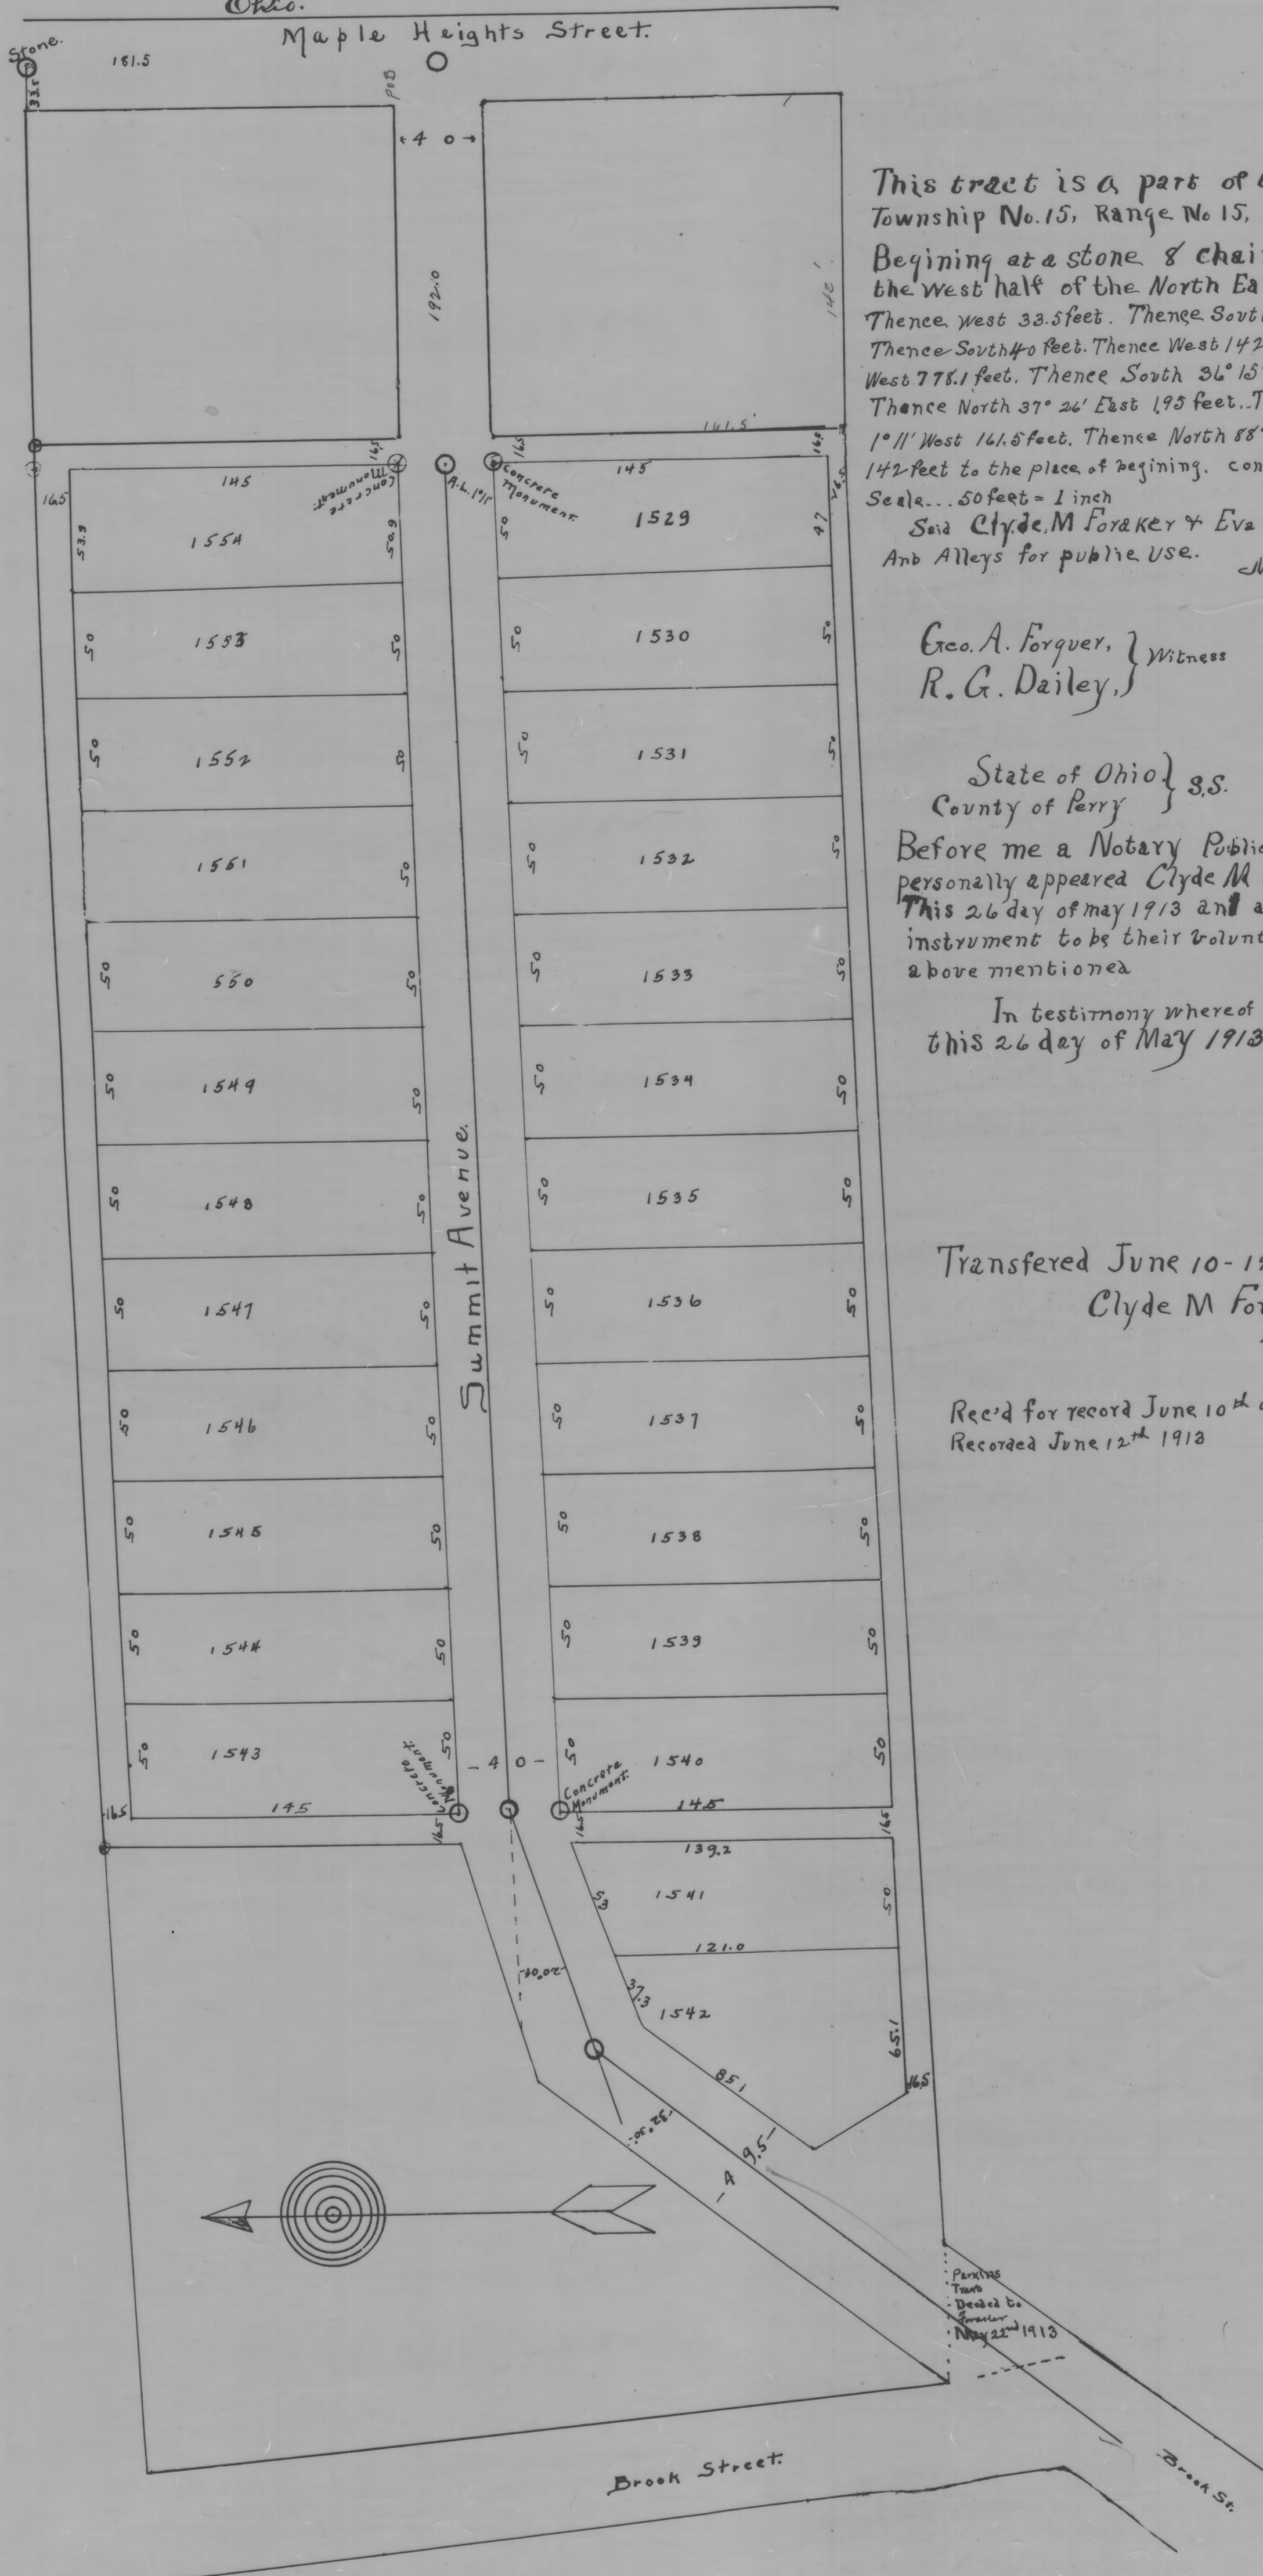 Ohio.
Maple Heights Street.
Stone.
181.5
33.5
POB
4 0
192.0
142'
161.5'
16.5
16.5
16.5
145
Concrete Monument
A.L. 1°11'
Concrete Monument.
145
16.5
26.5
53.9
1554
50.9
50
1529
47
50
1553
50
50
1530
50
50
1552
50
50
1531
50
1551
50
50
1532
50
50
550
50
50
1533
50
50
1549
50
50
1534
50
50
1548
50
50
1535
50
50
1547
50
50
1536
50
50
1546
50
50
1537
50
50
1545
50
50
1538
50
50
1544
50
50
1539
50
50
1543
50
- 4 0 -
50
1540
50
Summit Avenue.
16.5
145
Concrete Monument.
Concrete Monument.
145
16.5
16.5
16.5
139.2
53
1541
50
121.0
20°04'
37.3
1542
65.1
16.5
85.1
32°30'
- 4 9.5 -
Perkins
Deeded to
Foraker
May 22nd 1913
Brook Street.
Brook St.
This tract is a part of
Township No. 15, Range No 15,
Begining at a stone 8 chai
the West half of the North Ea
Thence West 33.5 feet. Thence Sout
Thence South 40 feet. Thence West 142
West 778.1 feet. Thence South 36° 15
Thence North 37° 26' East 195 feet. T
1° 11' West 161.5 feet. Thence North 88°
142 feet to the place of begining. con
Scale... 50 feet = 1 inch
Said Clyde, M Foraker & Eva
And Alleys for public use.
Geo. A. Forquer, } Witness
R. G. Dailey, }
State of Ohio } S.S.
County of Perry }
Before me a Notary Public
personally appeared Clyde M
This 26 day of may 1913 and a
instrument to be their volunt
above mentioned
In testimony whereof
this 26 day of May 1913
Transfered June 10 - 19
Clyde M For
Rec'd for record June 10th
Recorded June 12th 1913